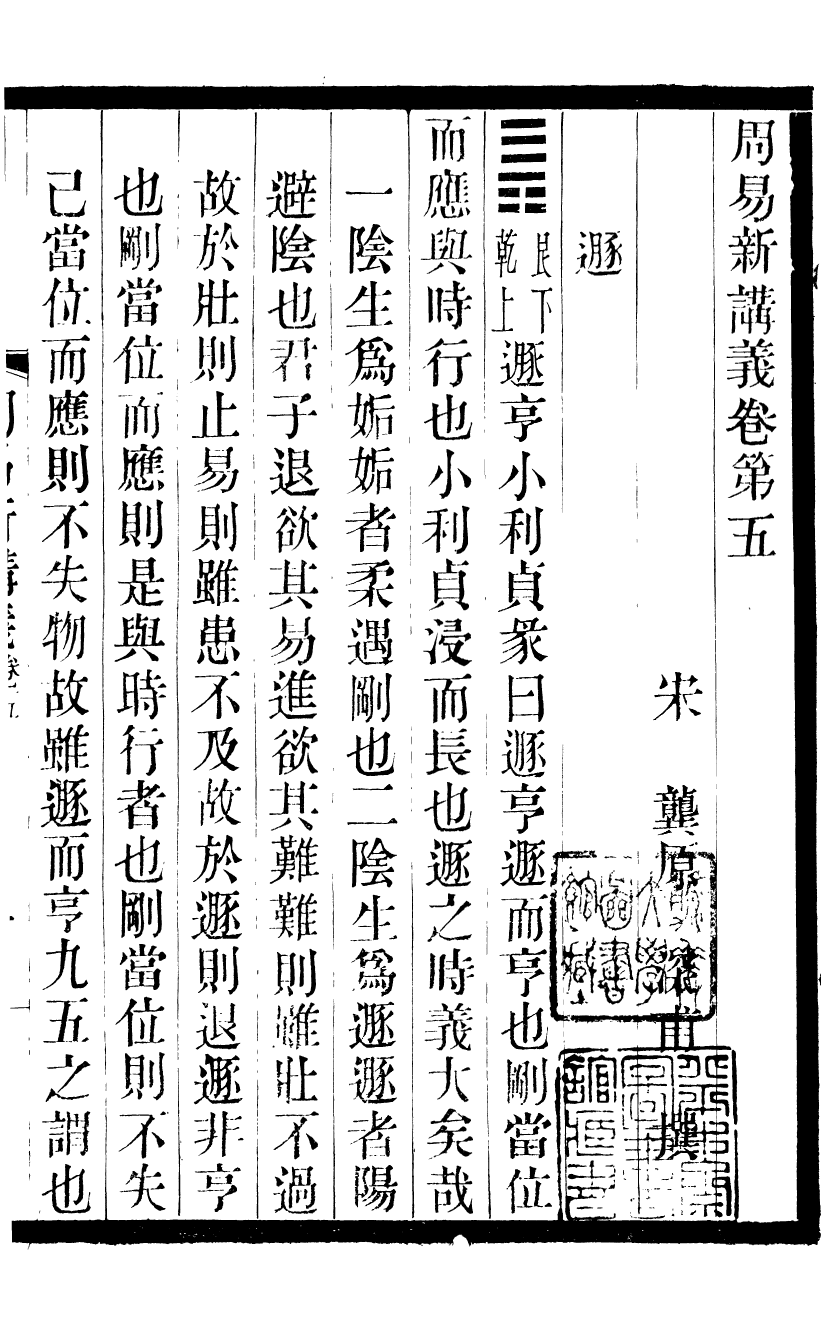 周易新講義卷第五
宋　龔原深甫　撰
遯
䷠艮下乾上遯亨小利貞彖曰遯亨遯而亨也剛當位
而應與時行也小利貞浸而長也遯之時義大矣哉
一陰生爲姤姤者柔遇剛也二陰生爲遯遯者陽
避陰也君子退欲其易進欲其難難則雖壯不過
故於壯則止易則雖患不及故於遯則退遯非亨
也剛當位而應則是與時行者也剛當位則不失
己當位而應則不失物故雖遯而亨九五之謂也